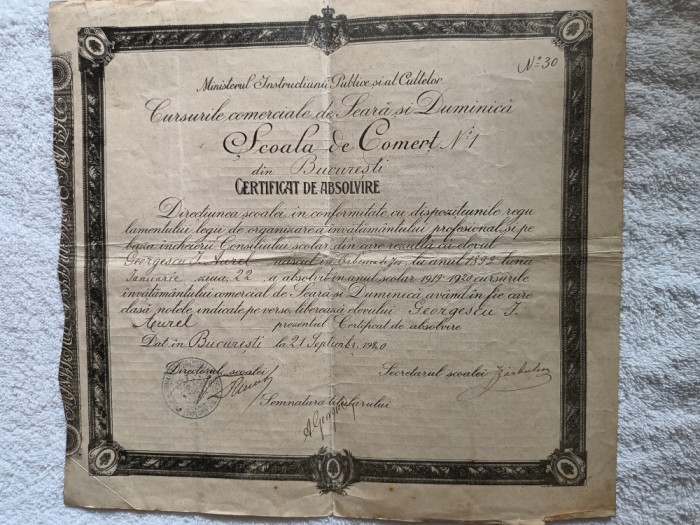 Nº 30
Ministerul Instrucțiunii Publice și al Cultelor
Cursurile comerciale de Seară și Duminică
Școala de Comerț Nº 1
din București
CERTIFICAT DE ABSOLVIRE
Direcțiunea școalei în conformitate cu dispozițiunile regu
lamentului legii de organizare a învătământului profesional, și pe
baza încheierii Consiliului școlar, din care rezultă că elevul
Georgescu I. Aurel născut în la anul 1892 luna
Ianuarie ziua 22, a absolvit în anul școlar 1919-1920 cursurile
învătământului comercial de Seară și Duminică, având în fie care
clasă notele indicate pe verso, liberează elevului Georgescu I.
Aurel prezentul Certificat de absolvire
Dat în București la 21 Septembre 1920
Directorul școalei Secretarul școalei
Semnătura titularului